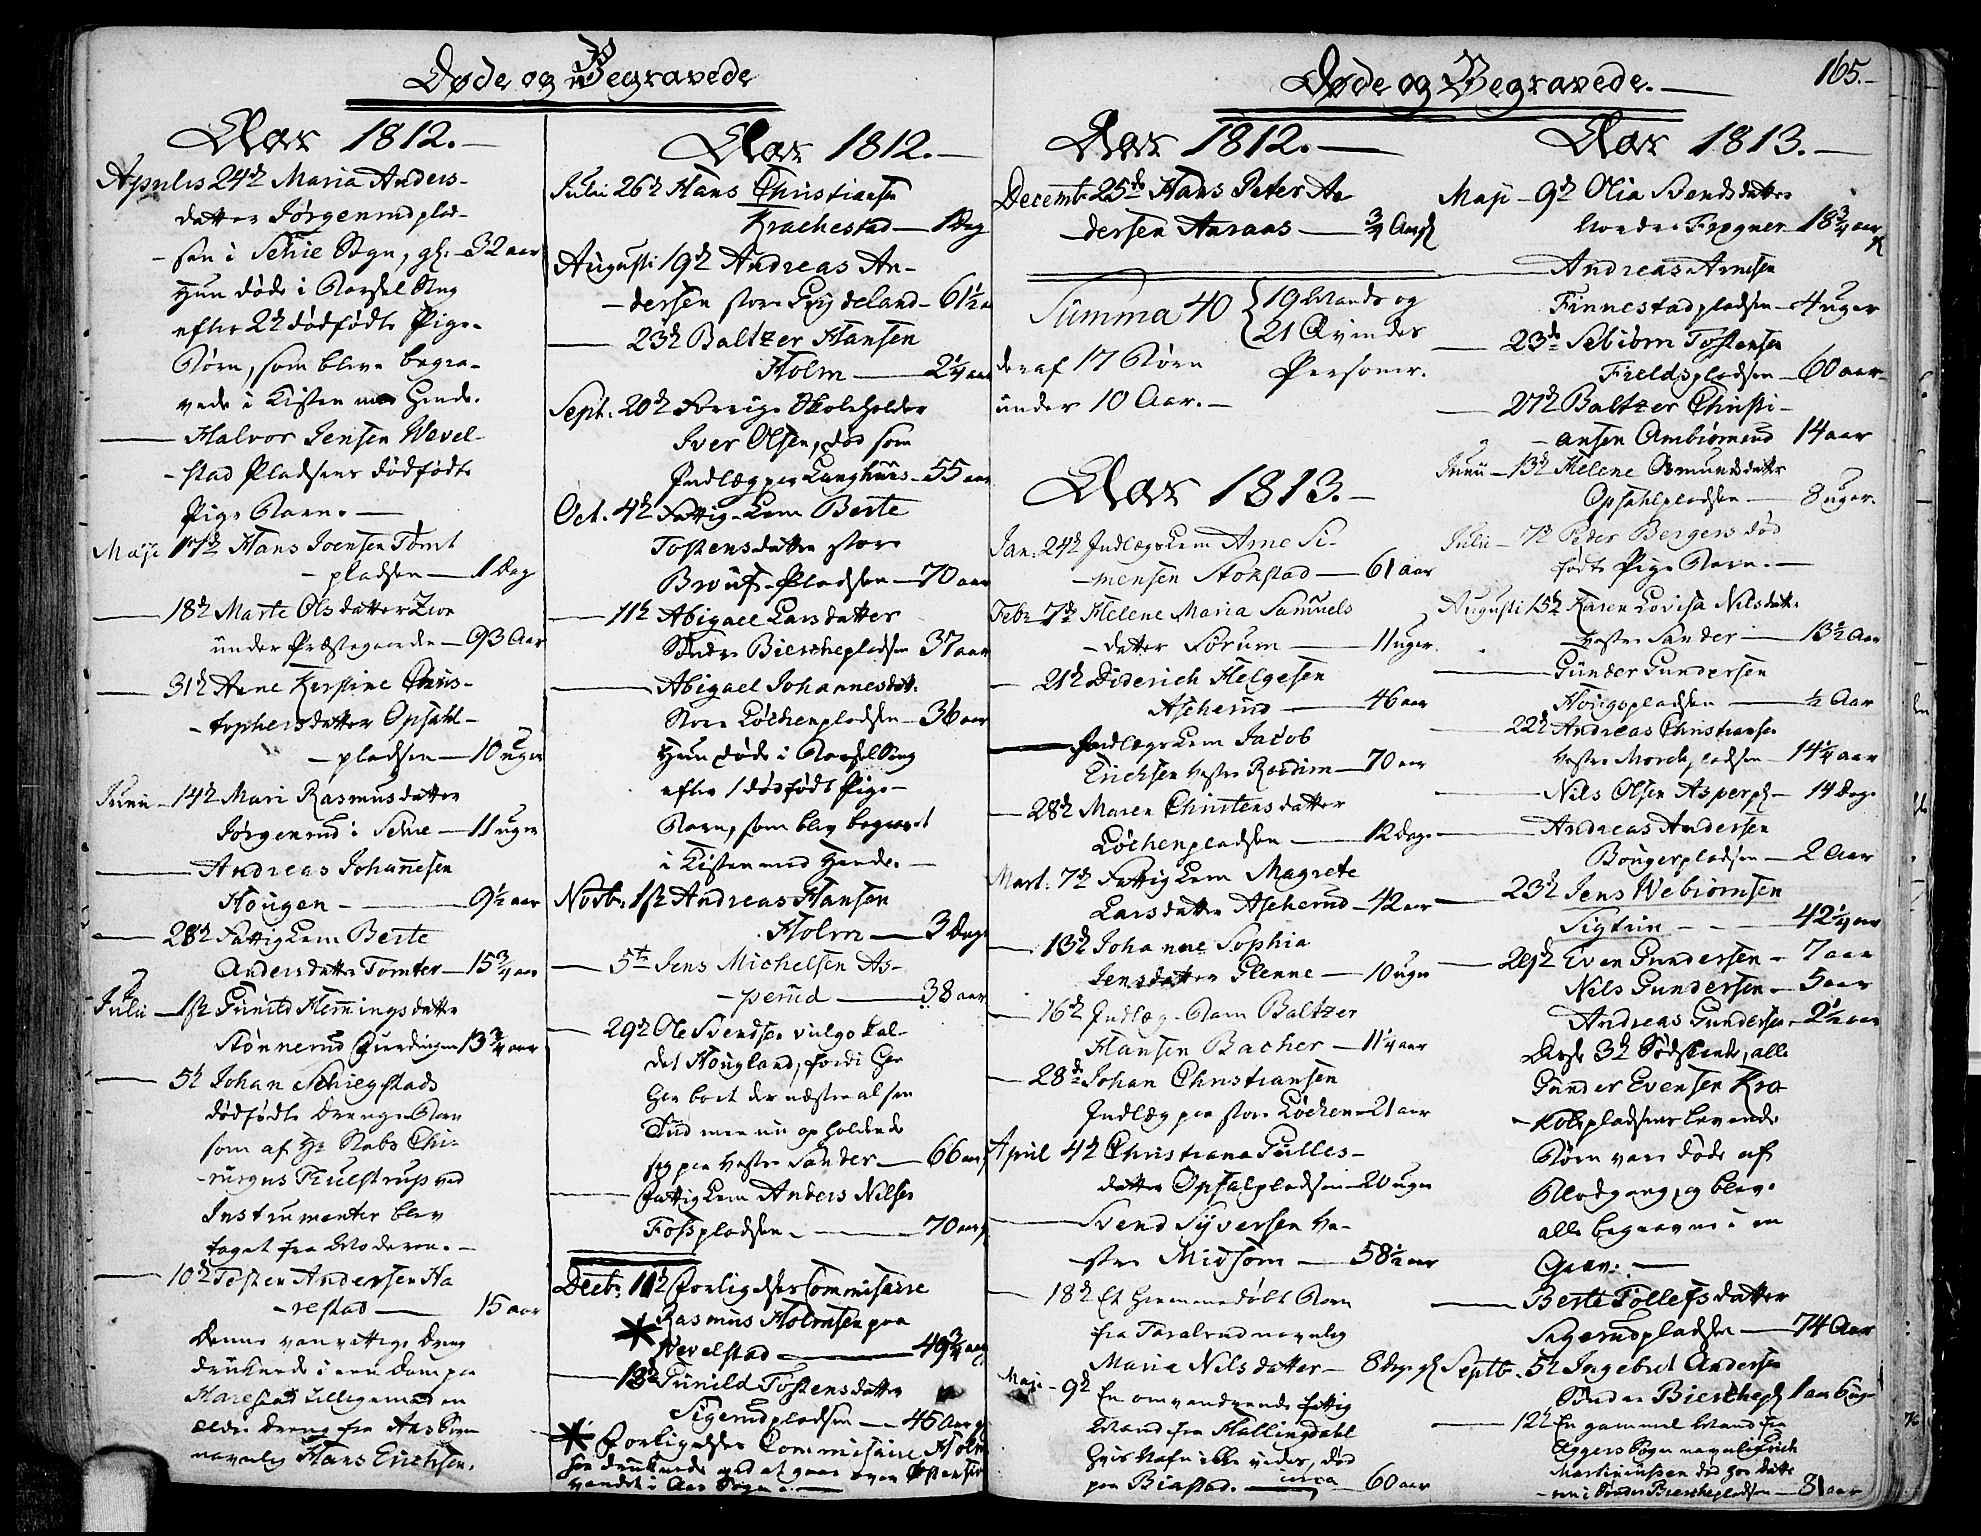 Døde og Begravede
Aar 1812.
Aprilis 24d Maria Anders-
datter Jørgenrudplad-
sen i Schie Sogn, gl. 32 aar
Hun døde i Barsel Seng
efter 2de dødfødte Pige-
Børn, som bleve begra-
vede i Kisten med Hende.
Halvor Jensen Wevel-
stad Pladsens dødfødte
Pige Barn.
Maji 17d Hans Joensen Tomt
pladsen 1 Dag
18d Marte Olsdatter
under Præstegaarden 93 Aar
31d Anne Kerstine Chris-
tophersdatter Opsahl-
pladsen 10 uger
Junii 14d Mari Rasmusdatter
Jørgenrud i Schie 11 uger
Andreas Johannesen
Hougen 9½ aar
28d Fattiglem Berte
Andersdatter Tomter 15¾ aar
Julii 1st Gunild Hemingsdatter
Stønnerud 13¾ aar
5d Johan Schiegstads
dødfødte Drenge Barn
som af Hr Stabs Chi-
rurgus Thulstrup ved
Instrumenter blev
taget fra Moderen.
10d Tosten Andersen Ha
restad 15 aar
Denne vanvittige Dreng
druknede i en Dam paa
Harestad tilligemed en
ældre Dreng fra Aas Sogn
navnlig Hans Erichsen.
Aar 1812.
Julii 26d Hans Christiansen
Krachestad 1 Dag
Augusti 19d Andreas An-
dersen store Grydeland 61½ a
23d Baltzer Hansen
Holm 2¼ aar
Sept. 20d Forrige Skoleholder
Iver Olsen, død som
Indlæg paa Langhuus 55 aar
Oct. 4d Fattig-Lem Berte
Tostensdatter store
Bruus-Pladsen 70 aar
11d Abigael Larsdatter
Søndre Bierchepladsen 37 aar
Abigael Johannesdatt.
Store Løchenpladsen 36 aar
Hun døde i Barsel Seng
efter 1 dødfødt Pige-
Barn, som blev begravet
i Kisten med Hende.
Novbr. 1st Andreas Hansen
Holm 3 Dage
5te Jens Michelsen As-
perud 38 aar
29d Ole Svendsen vulgo kal-
det Hougland, fordi Han
Han boet der næsten al sin
Tid men nu opholdende
sig paa Vestre Sander 66 aar
Fattiglem Anders Nilsen
Fosspladsen 70 aar
Decbr. 11d Forligelses Commissaire
* Rasmus Holmsen paa
Wevelstad 49¾ aar
13d Gunild Tostensdatter
Sigerudpladsen 45 Aar gl
* Forligelses Commissaire Holm
sen druknede ved at gaae over Østensiø
vandet i Aas Sogn.
Døde og Begravede.
165.
Aar 1812.
Decemb. 25de Hans Peter An
dersen Aaraas ¾ Aar gl
Summa 40 { 19 Mands og
21 Qvindes
Personer.
deraf 17 Børn
under 10 Aar.
Aar 1813.
Jan. 24d Indlægslem Arne Si-
mensen Stokstad 61 aar
Febr. 7de Helene Maria Samuels
datter Sørum 11 uger
21d Diderich Helgesen
Ascherud 46 aar
Indlægslem Jacob
Erichsen Vestre Raadim 70 aar
28d Maren Christensdatter
Løchenpladsen 12 Dage
Mart. 7de Fattig Lem Magrete
Larsdatter Ascherud 42 aar
13d Johanne Sophia
Jensdatter Glenne 10 uger
16d Indlæg-Barn Baltzer
Hansen Bacher 11¼ aar
28de Johan Christiansen
Indlæg paa store Løchen 21 aar
April 4d Christiana Gulles-
datter Opsalpladsen 20 uger
Svend Syversen ve-
stre Midsom 58½ aar
18d Et Hiemmedøbt Barn
fra Taralrud navnlig
Maria Nilsdatter 8 Dage gl
Maji 9d En omvandrende fattig
Mand fra Hallingdahl
hvis Nafn ikke vides, død
paa Biastad. circa 60 aar
Aar 1813.
Maji 9d Olia Svendsdatter
Nordre Frogner 18¾ aar gl
Andreas Arnesen
Finnestadpladsen 4 uger
23de Sebiørn Tostensen
Fieldspladsen 60 aar
27d Baltzer Christi-
ansen Ambiørnrud 14 aar
Junii 13d Helene Osmundsdatter
Opsahlpladsen 8 uger
Julii 7d Peder Bergers død
fødte Pige Barn.
Augusti 15d Karen Lovisa Nilsdatt.
Vestre Sander 13½ Aar
Gunder Gundersen
Hougspladsen ½ Aar
22d Andreas Christiansen
Vestre Morch pladsen 14¼ aar
Nils Olsen Asperpl 14 Dage
Andreas Andersen
Bougerpladsen 2 Aar
23d Jens Webiørnsen
Sigtun 42¼ aar
29d Even Gundersen 7 aar
Nils Gundersen 5 aar
Andreas Gundersen 2½ aar
Disse 3de Sødskende, alle
Gunder Evensen Kra
kobspladsens levende
Børn vare døde af
Blodgang, og bleve
alle begravne i een
Grav.
Berte Tollefsdatter
Sigerudpladsen 74 Aar
Septbr. 5d Ingebret Andersen
Søndre Bierchepl 1 aar 6 uger
12d En gammel Mand fra
Aggers Sogn navnlig Erich
Martinussen død hos Datte
ren i Søndre Bierchepladsen 81 aar